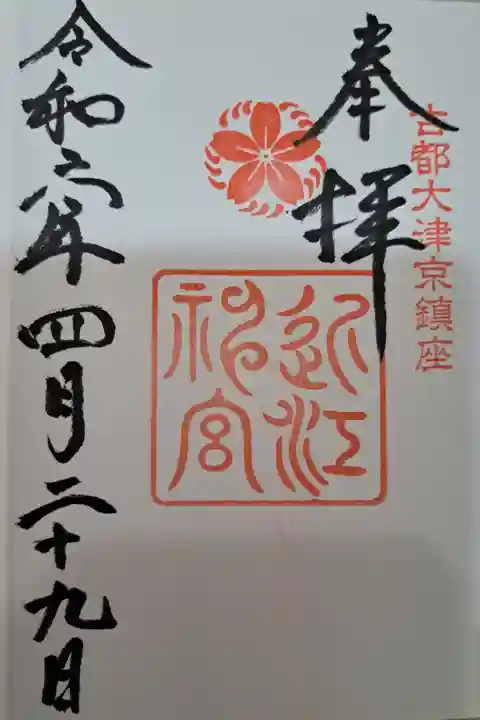 奉拝
古都大津京鎮座
近江
神宮
令和六年四月二十九日